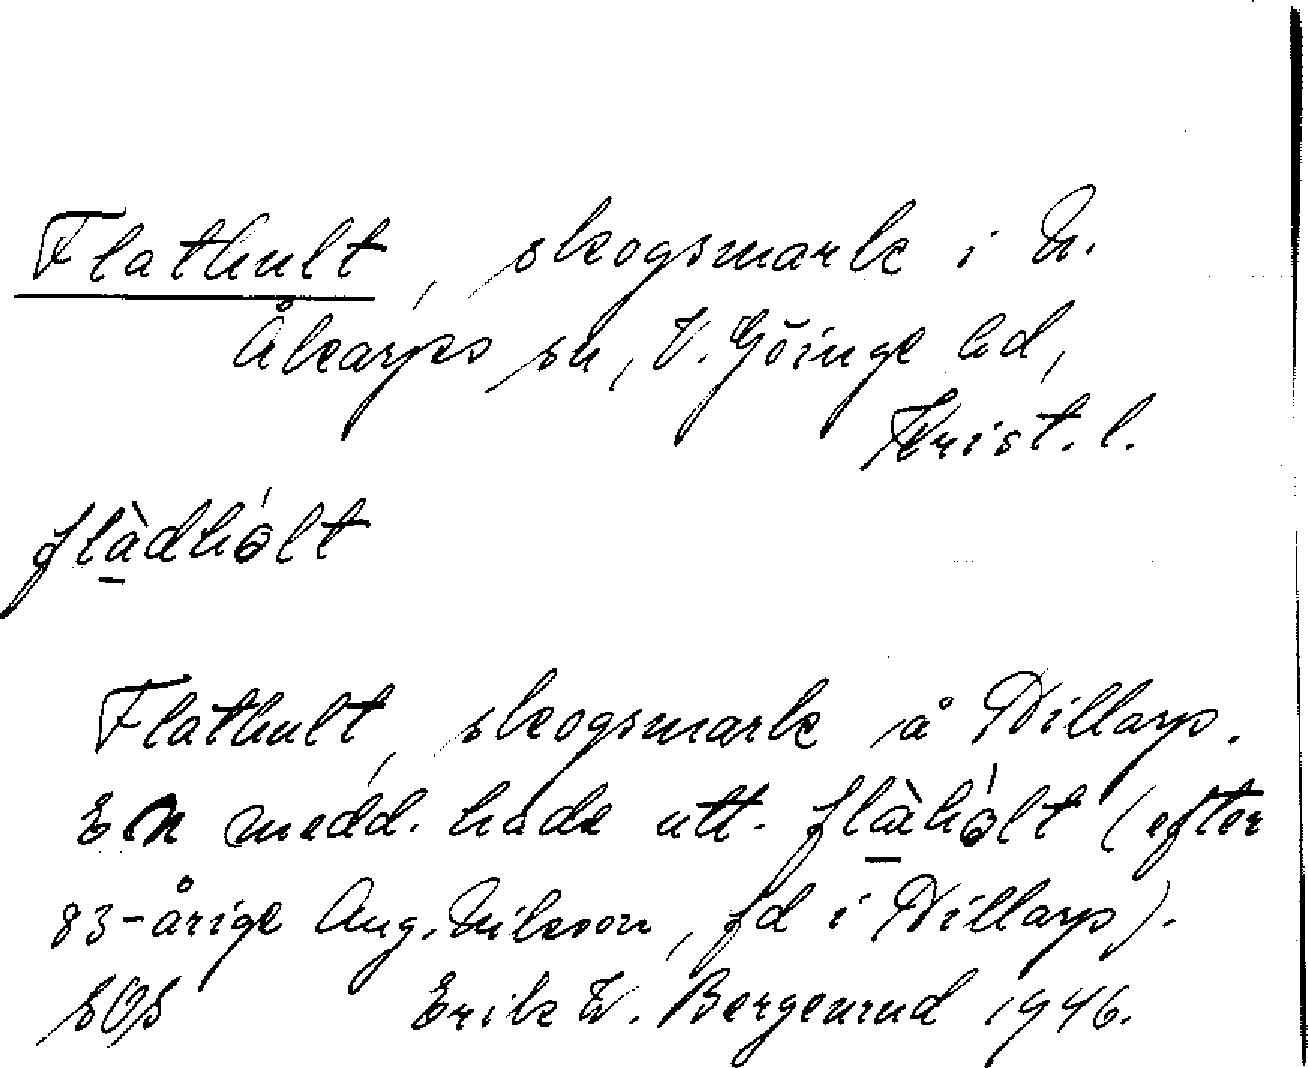 Flathult, skogsmark i N.
Åkarps sn, V. Göinge hd,
Krist. l.
flàdhólt
Flathult, skogsmark å Dillarp.
En medd. hade utt. flàhólt (efter
83-årige Aug. Nilsson, fd i Dillarp).
SOS Erik W. Bergenrud 1946.